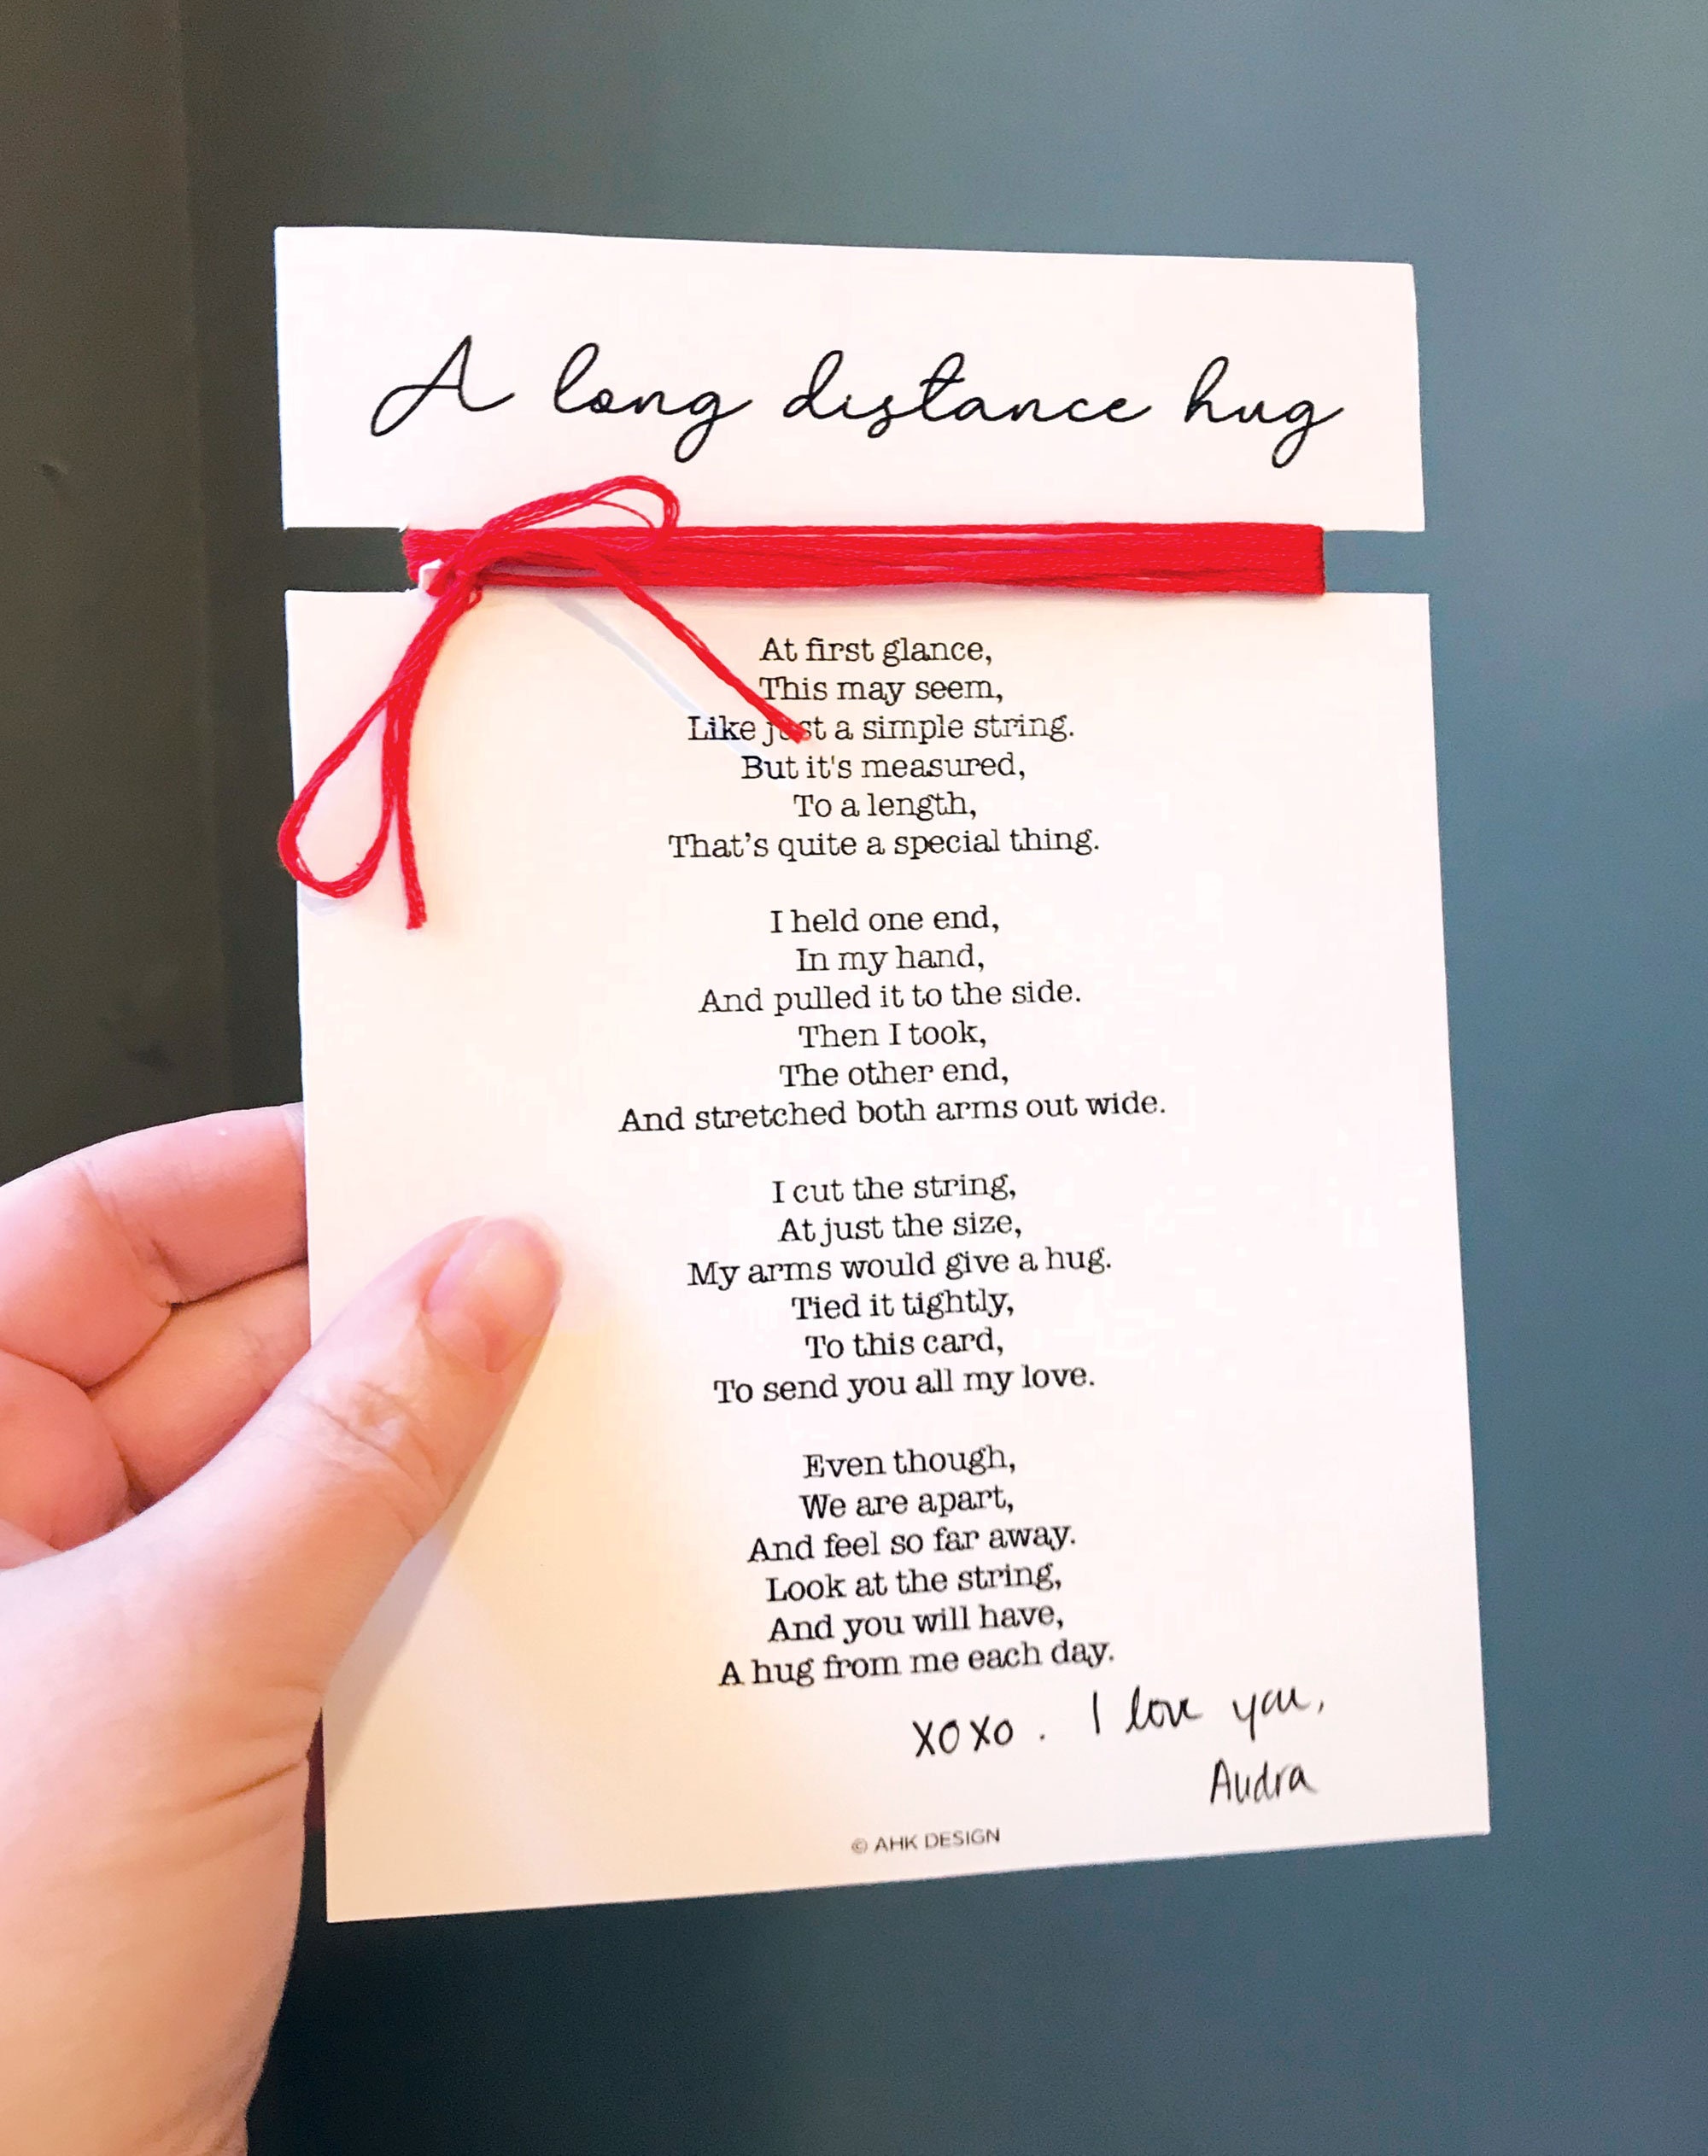 A long distance hug
At first glance,
This may seem,
Like just a simple string.
But it's measured,
To a length,
That’s quite a special thing.
I held one end,
In my hand,
And pulled it to the side.
Then I took,
The other end,
And stretched both arms out wide.
I cut the string,
At just the size,
My arms would give a hug.
Tied it tightly,
To this card,
To send you all my love.
Even though,
We are apart,
And feel so far away.
Look at the string,
And you will have,
A hug from me each day.
XOXO. I love you,
Audra
© AHK DESIGN